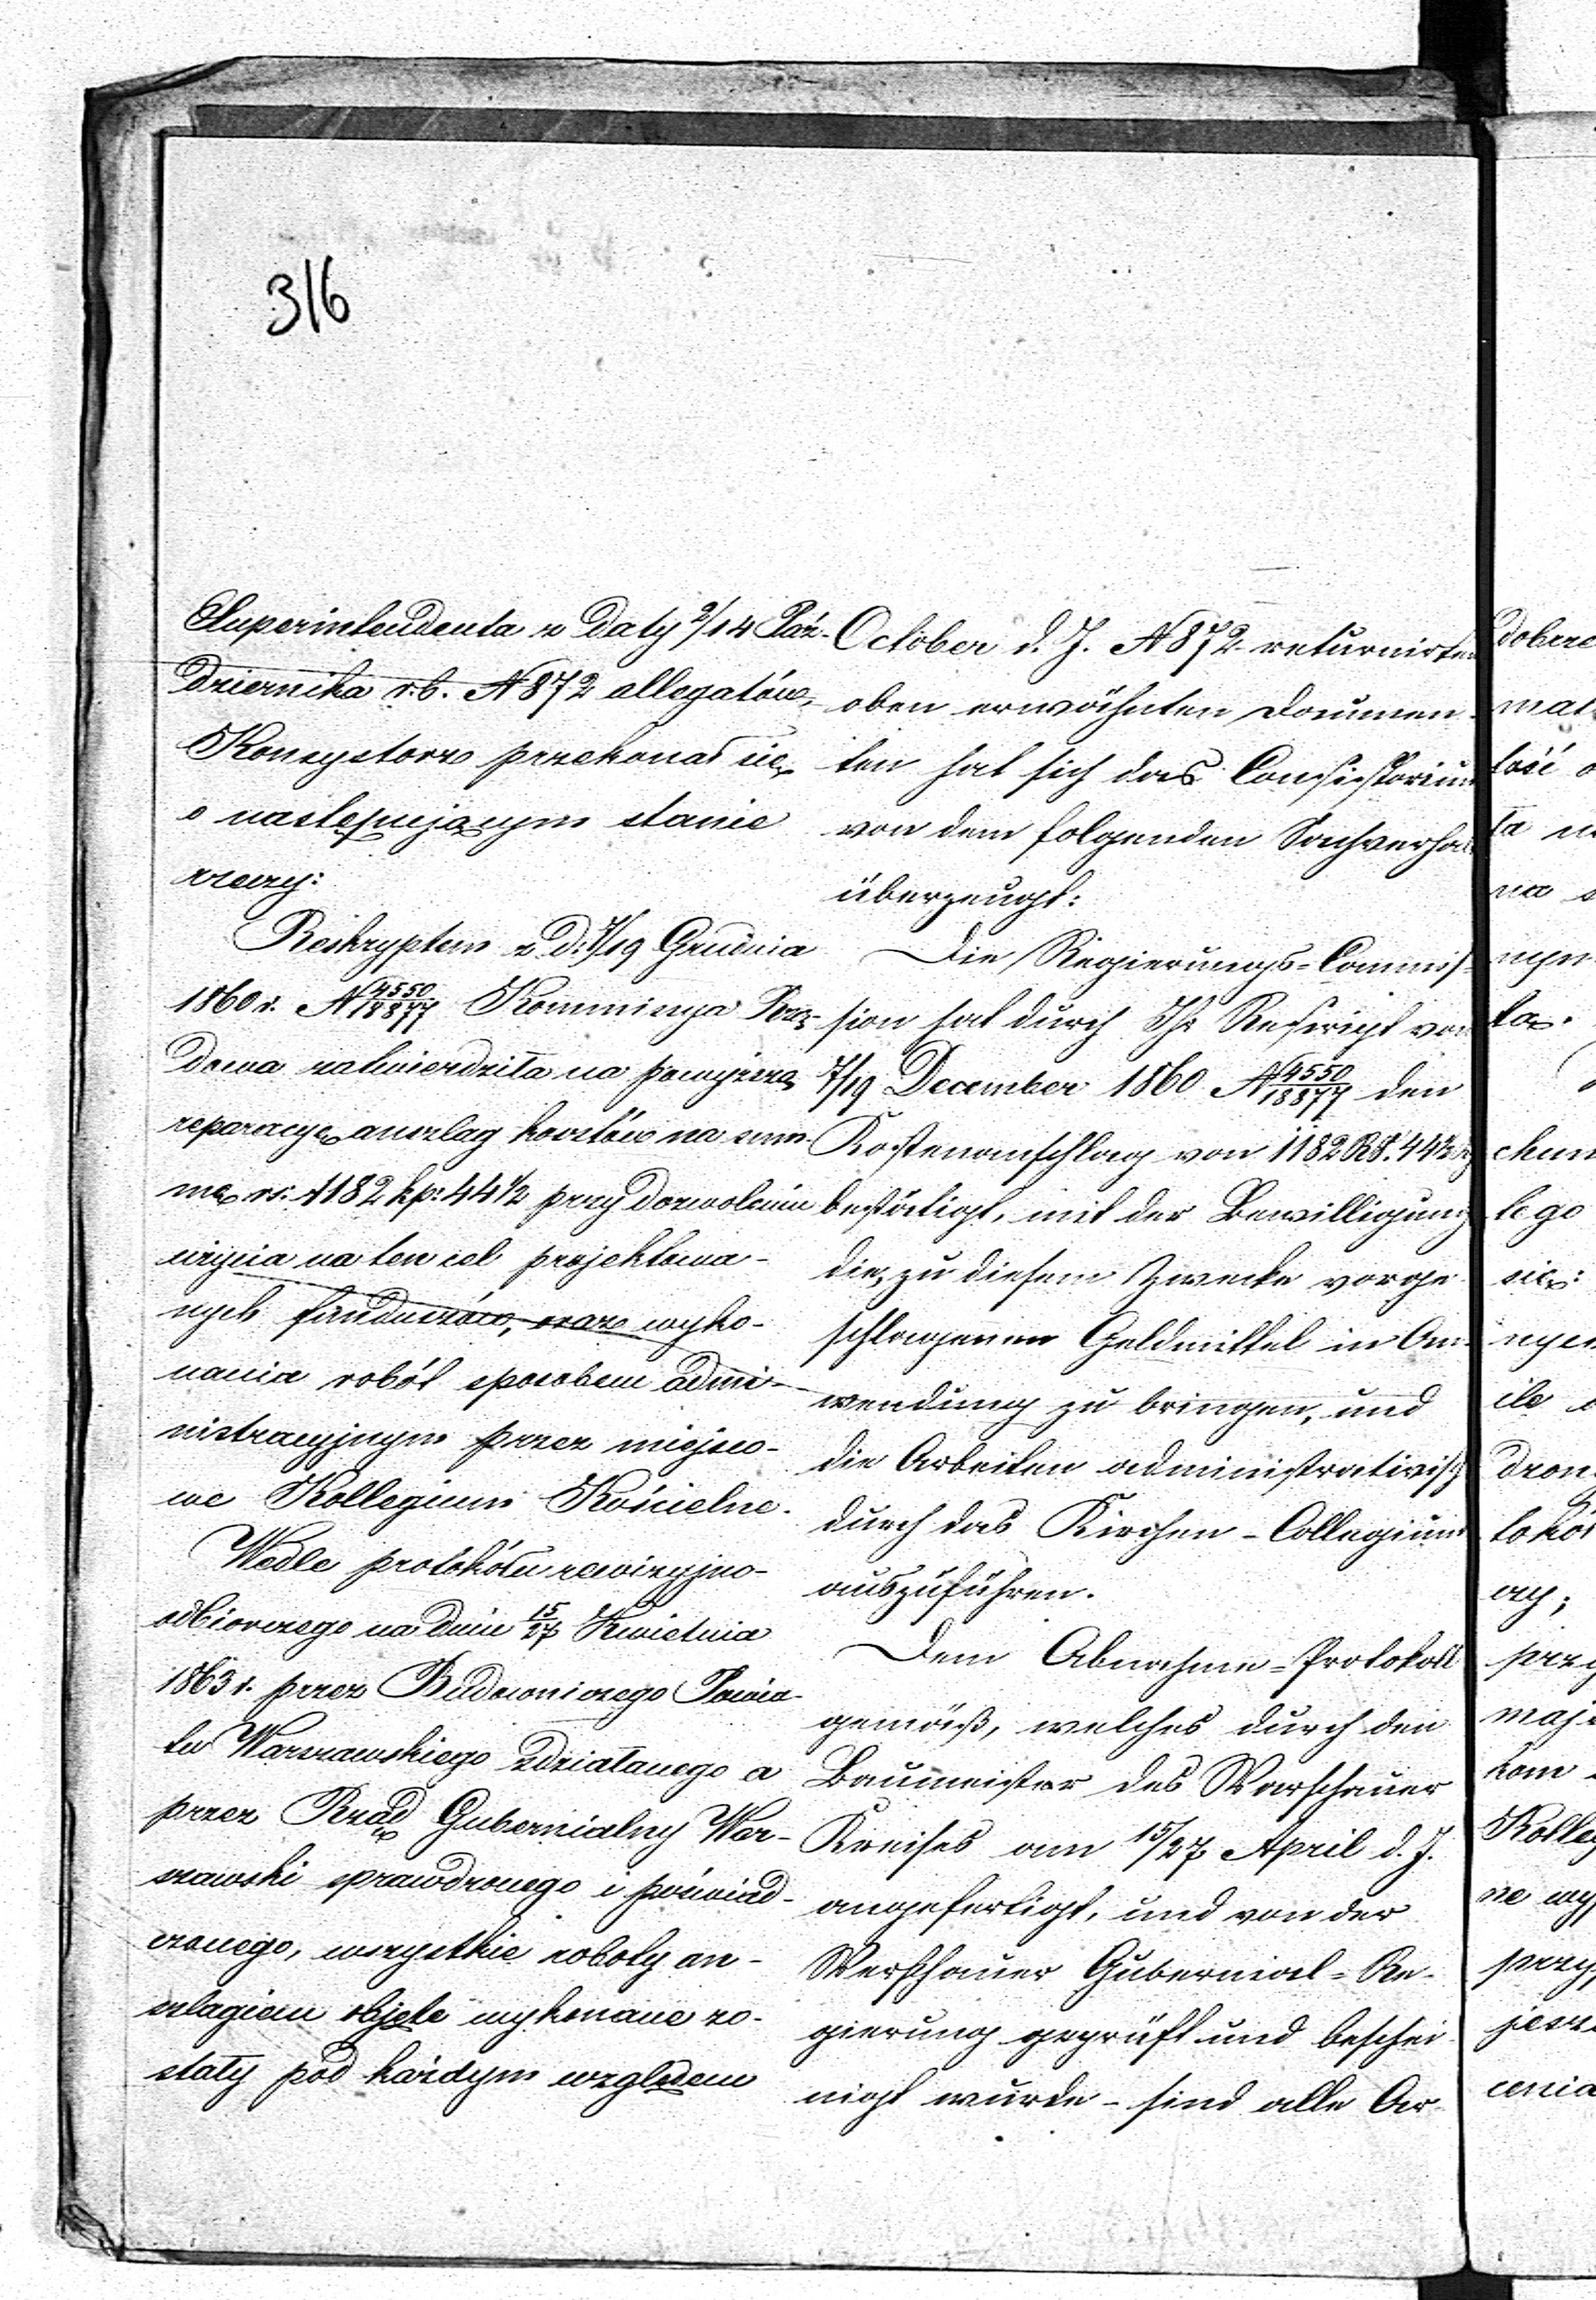 316
Superintendenta z daty 2/14 Paź-
dziernika r.b. N 872 allegatów,
Konsystorz przekonał się
o następującym stanie
rzeczy:
Reskryptem z d. 7/19 Grudnia
1860 r. N 4550/18877 Kommissya Rzą-
dowa zatwierdziła na powyższą
reparacyę anszlag kosztów na sum-
mę rs. 1182 kp. 44 1/2 przy dozwoleniu
użycia na ten cel projektowa-
nych funduszów, oraz wyko-
nania robót sposobem admi-
nistracyjnym przez miejsco-
we Kollegium Kościelne.
Wedle protokółu rewizyjno-
odbiorczego na dniu 15/27 Kwietnia
1863 r. przez Budowniczego Powia-
tu Warszawskiego zdziałanego a
przez Rząd Gubernialny War-
szawski sprawdzonego i poświad-
czonego, wszystkie roboty an-
szlagiem objęte wykonane zo-
stały pod każdym względem
October d. J. N 872 returnirten
oben erwähnten Documen-
ten hat sich das Consistorium
von dem folgenden Sachverhalt
überzeugt:
Die Regierungs=Commis-
sion hat durch Ihr Rescript vom
7/19 December 1860 N 4550/18877 den
Kostenanschlag von 1182 RS. 44 1/2
bestätigt, mit der Bewilligung
die, zu diesem Zwecke vorge-
schlagenen Geldmittel in An-
wendung zu bringen, und
die Arbeiten administrativisch
durch das Kirchen-Collegium
auszuführen.
Dem Abnahme=Protokoll
gemäß, welches durch den
Baumeister des Warschauer
Kreises am 15/27 April d. J.
angefertigt, und von der
Warschauer Gubernial=Re-
gierung geprüft und beschei-
nigt wurde - sind alle Ar-
dobrze
łość
ta
na
nym
tą.
chun
tego
się:
ile
dron
tokół
czy;
przy
maj
kom
Kolleg
ne wy
przy
jesz
cenia